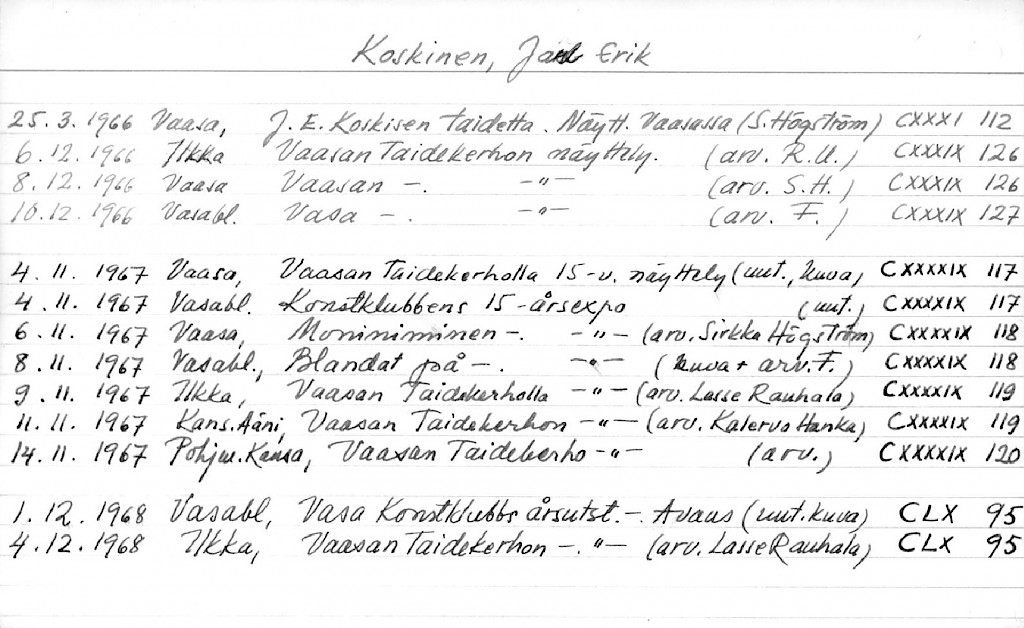 Koskinen, Jarl Erik
25.3.1966 Vaasa, J.E. Koskisen taidetta. Näytt. Vaasassa (S. Högström) CXXXI 112
6.12.1966 Ilkka Vaasan Taidekerhon näyttely. (arv. R.U.) CXXXIX 126
8.12.1966 Vaasa Vaasan -. -"- (arv. S.H.) CXXXIX 126
10.12.1966 Vasabl. Vasa -. -"- (arv. F.) CXXXIX 127
4.11.1967 Vaasa, Vaasan Taidekerholla 15-v. näyttely (uut., kuva) CXXXXIX 117
4.11.1967 Vasabl. Konstklubbens 15-årsexpo (uut.) CXXXXIX 117
6.11.1967 Vaasa, Moniniminen -. -"- (arv. Sirkka Högström) CXXXXIX 118
8.11.1967 Vasabl., Blandat på -. -"- (kuva + arv. F.) CXXXXIX 118
9.11.1967 Ilkka, Vaasan Taidekerholla -"- (arv. Lasse Rauhala) CXXXXIX 119
11.11.1967 Kans. Ääni, Vaasan Taidekerhon -"- (arv. Kalervo Hanka) CXXXXIX 119
14.11.1967 Pohjw. Kansa, Vaasan Taidekerho -"- (arv.) CXXXXIX 120
1.12.1968 Vasabl, Vasa Konstklubbs årsutst. -. Avaus (uut. kuva) CLX 95
4.12.1968 Ilkka, Vaasan Taidekerhon -. "- (arv. Lasse Rauhala) CLX 95